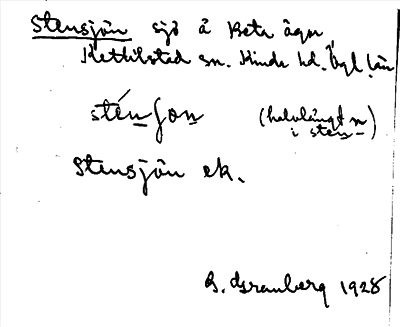 Stensjön sjö å Beta ägor
Kettilstad sn. Kinda hd. Ögl län
sténʃon (halvlångt n
i sten)
Stensjön ek.
G. Granberg 1928